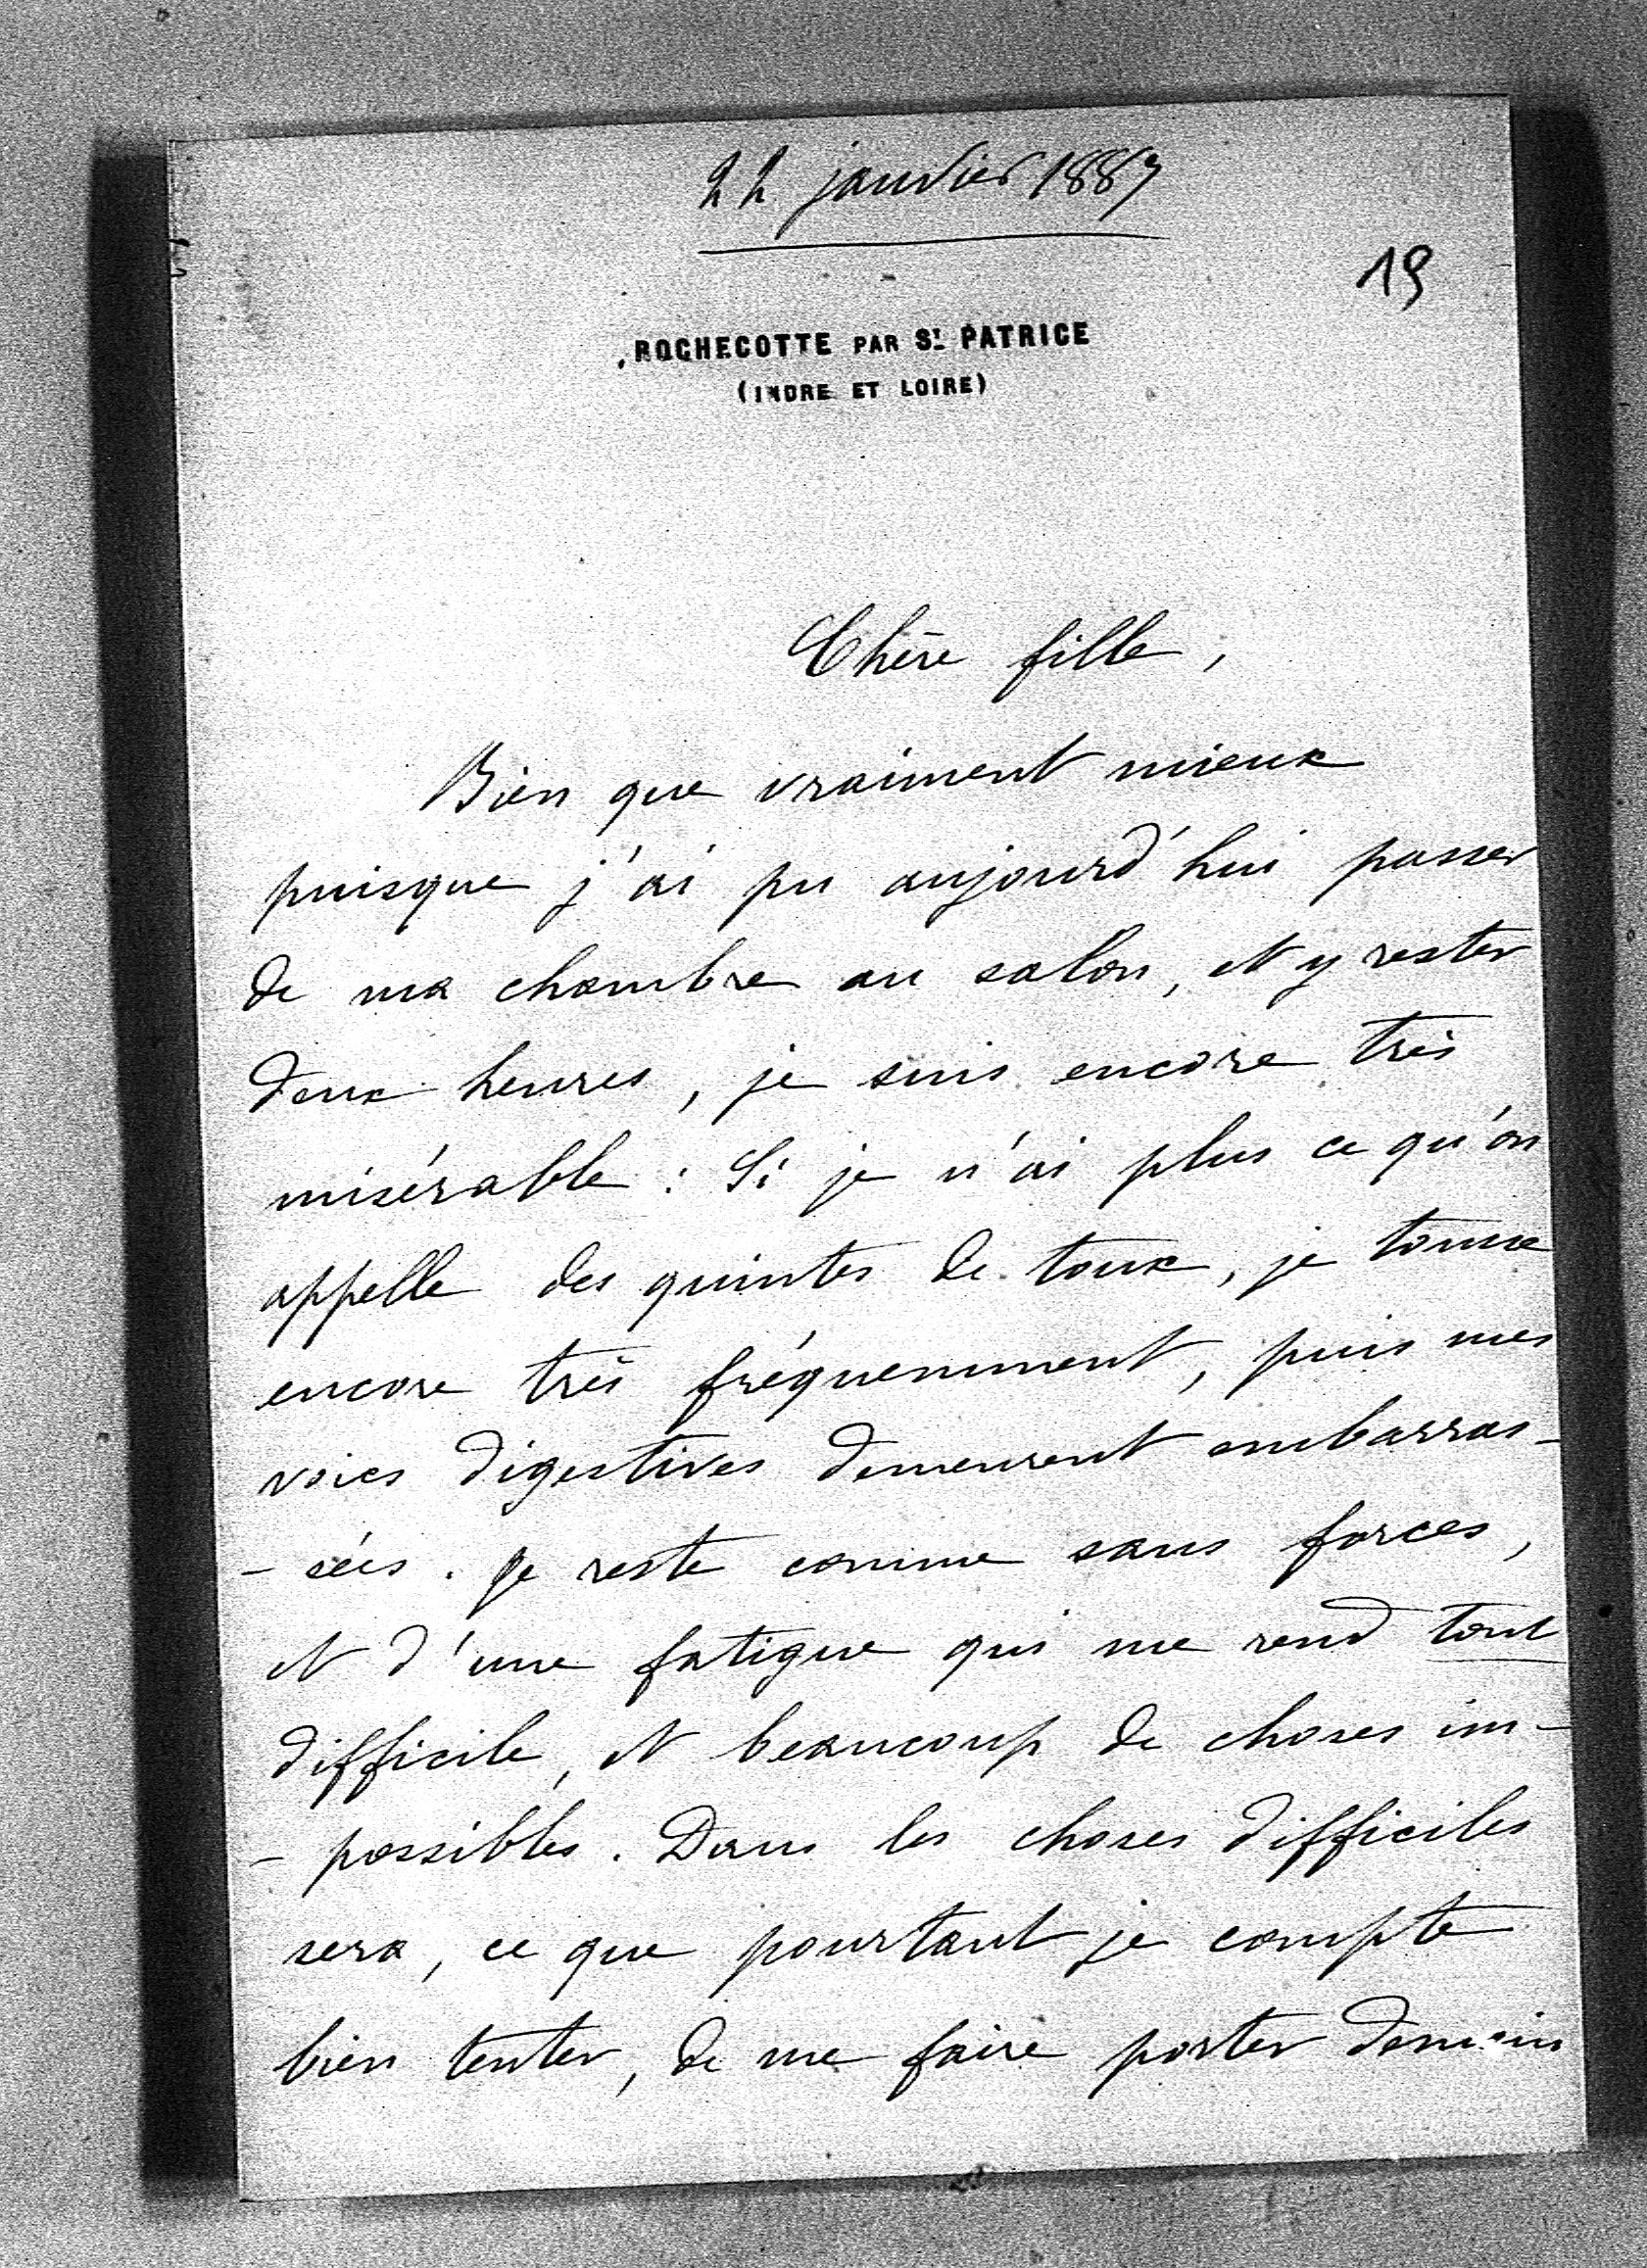 22 janvier 1887
19
ROCHECOTTE PAR St. PATRICE
(INDRE ET LOIRE)
Chère fille,
Bien que vraiment mieux
puisque j'ai pu aujourd'hui passer
de ma chambre au salon, et y rester
deux heures, je suis encore très
misérable : Si je n'ai plus ce qu'on
appelle des quintes de toux, je tousse
encore très fréquemment, puis mes
voies digestives demeurent embarras-
- sées. Je reste comme sans forces,
et d'une fatigue qui me rend tout
difficile, et beaucoup de choses im-
- possibles. Dans les choses difficiles
sera, ce que pourtant je compte
bien tenter, de me faire porter demain